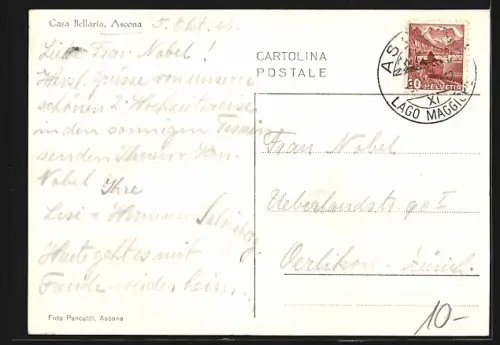 Casa Bellaria, Ascona 5. Okt. 46.
Liebe Frau Nobel!
Herzl. Grüsse von unserer
schönen 2. Hochzeitsreise
in den sonnigen Tessin
senden Ihnen + Herrn
Nobel Ihre
Lisi + Hermann
Heute geht es mit
Freude wieder heim.
Foto Pancaldi, Ascona
CARTOLINA
POSTALE
30 HELVETIA
AS
XI
LAGO MAGGIORE
Frau Nobel
Ueberlandstr. 90 I
Oerlikon - Zürich.
10-